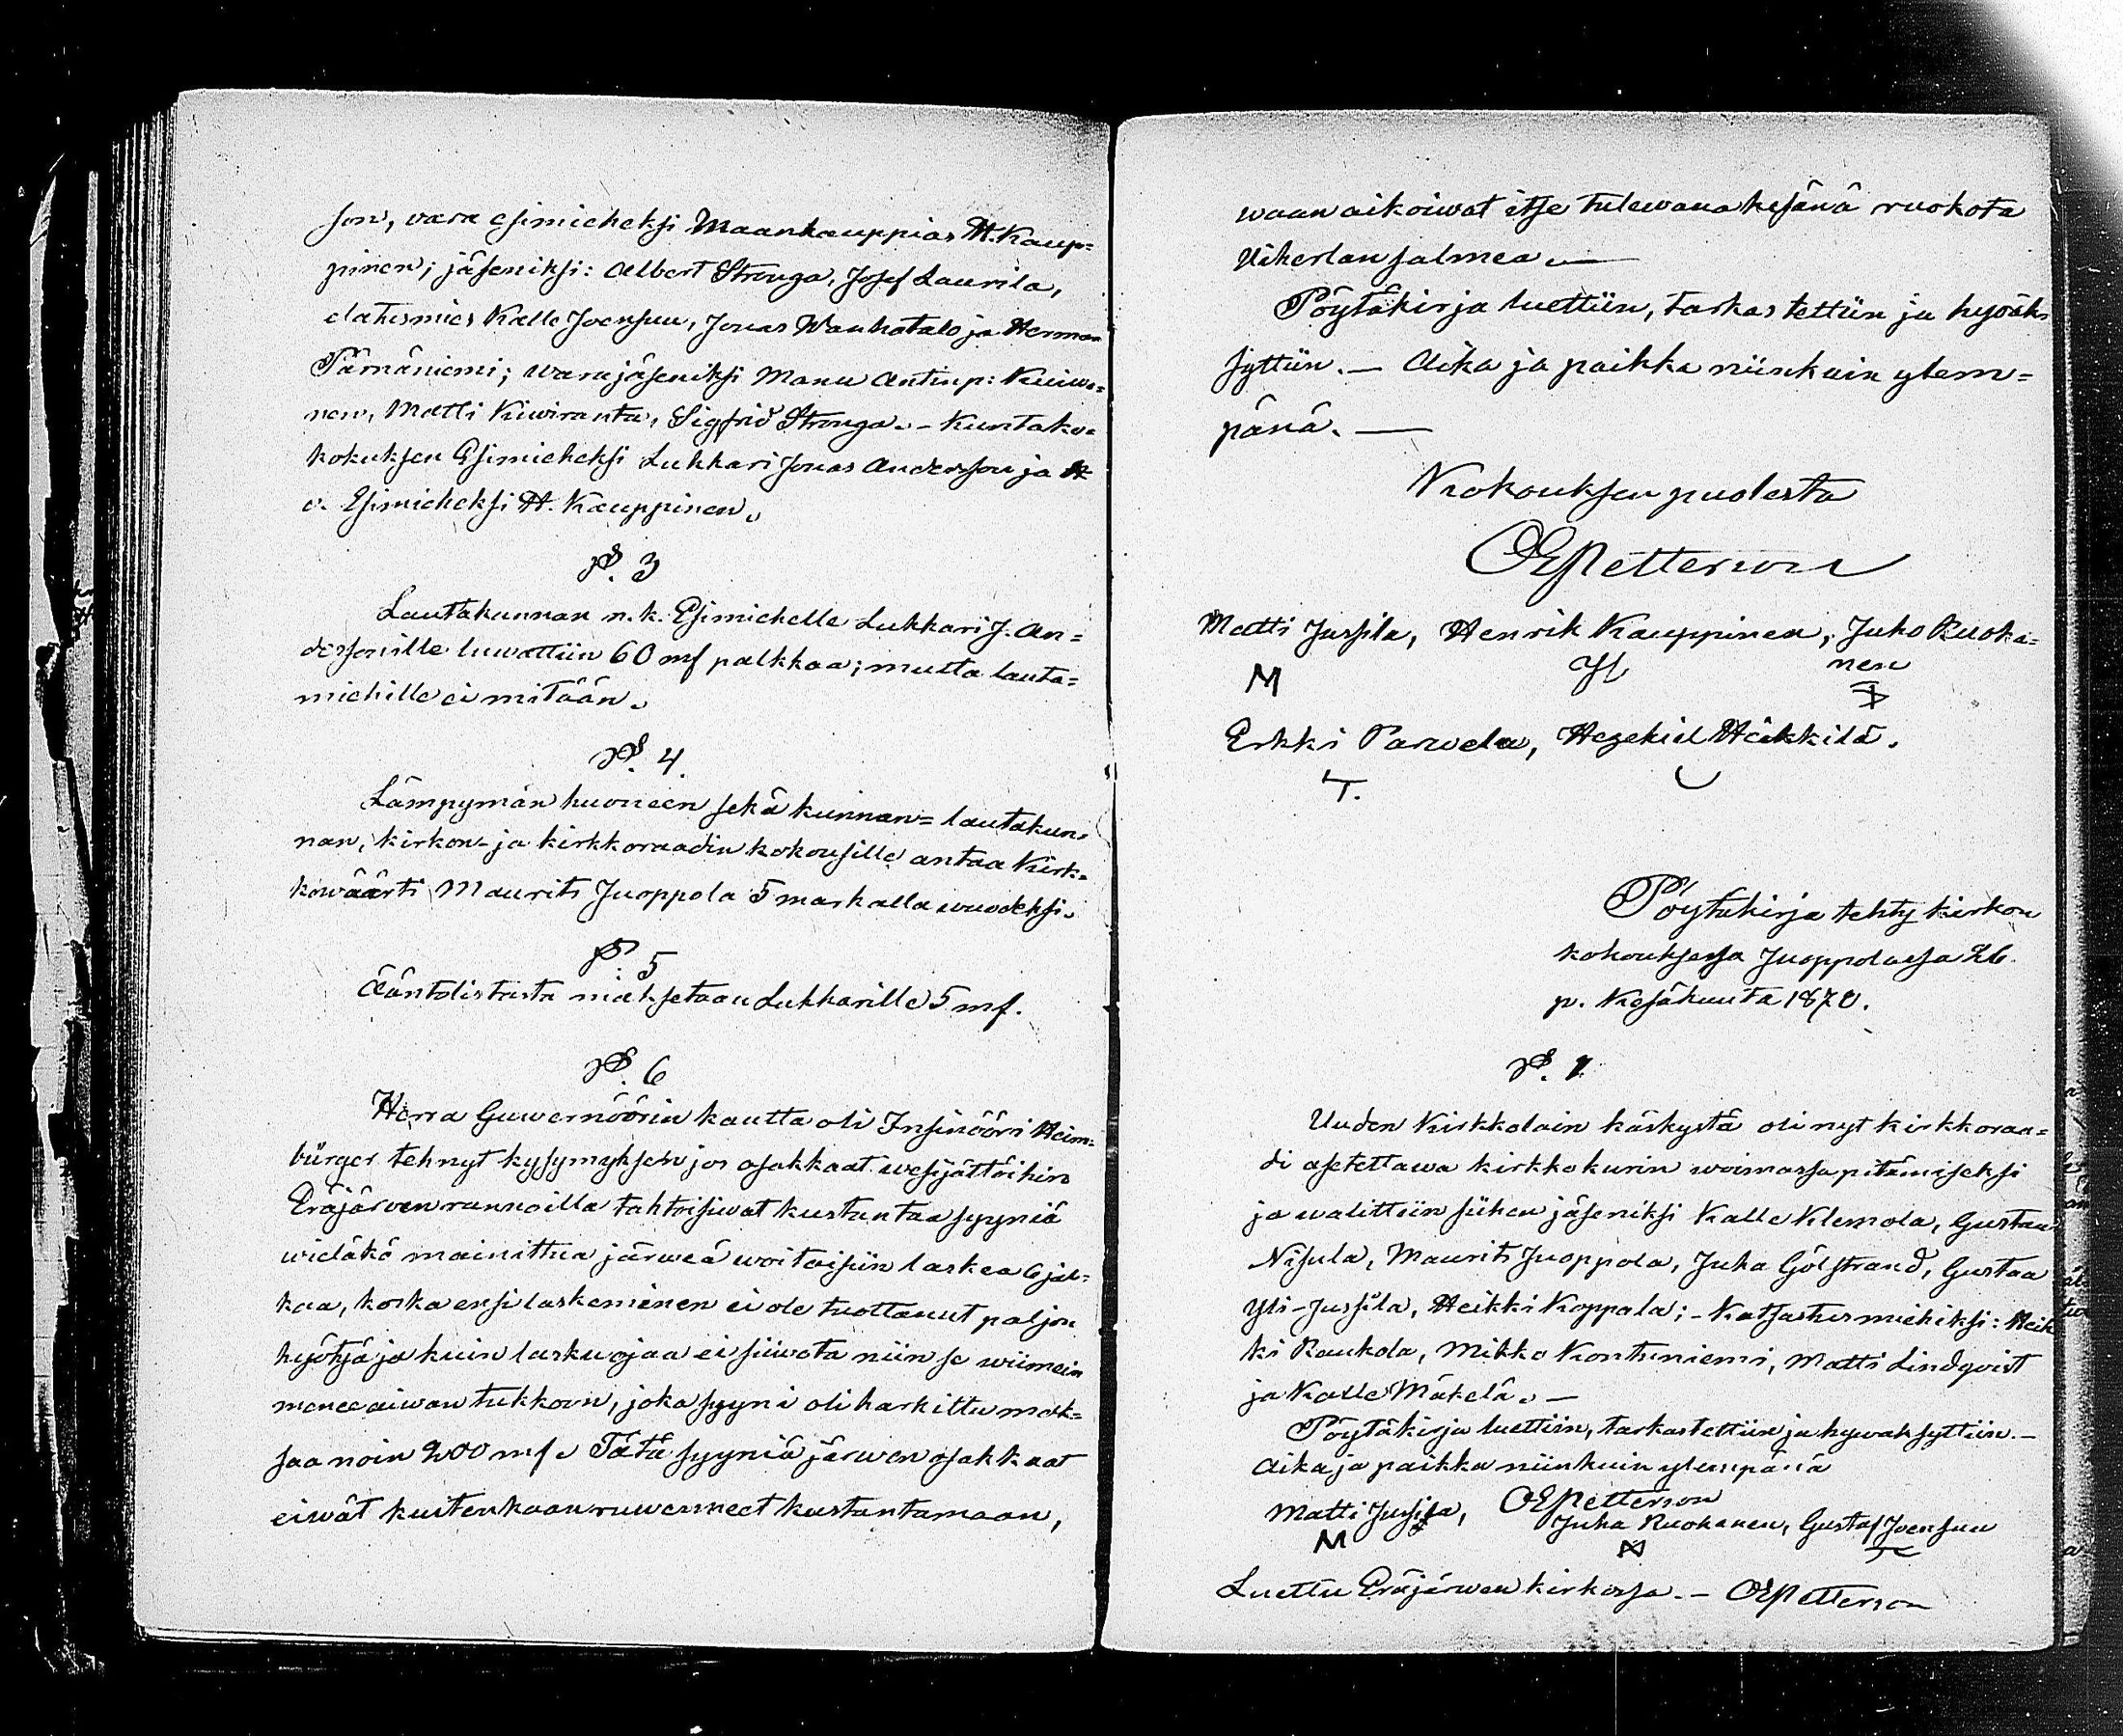 son, vara esimieheksi Maankauppias H. Kaup=
pinen; jäseniksi: Albert Stronga, Josef Laurila,
elatusmies Kalle Joensuu, Jonas Wanhatalo ja Herman
Pärnäniemi; warajäseniksi Manu Antinp: Kuiwa=
nen, Matti Kiwiranta, Sigfrid Stronga. - Kuntako=
kokuksen Esimieheksi Lukkari Jonas Andersson ja
v. Esimieheksi H. Kauppinen.
§. 3
Lautakunnan n.k. Esimiehelle Lukkari J. An=
derssonille luwattiin 60 mf palkkaa; mutta lauta=
miehille ei mitään.
§. 4.
Lämpymän huoneen sekä kunnan= lautakun=
nan, kirkon- ja kirkkoraadin kokousille antaa Kirk=
kowäärti Maurits Juoppola 5 markalla wuodeksi.
§. 5
Ääntölistasta maksetaan Lukkarille 5 mf.
§. 6
Herra Guwernöörin kautta oli Insinööri Heim=
bürger tehnyt kysymyksen jos osakkaat wesijättöihin
Eräjärven rannoilla tahtoisiwat kustantaa syyniä
wieläkö mainittua järweä woitaisiin laskea 6 jal=
kaa, koska ensi laskeminen ei ole tuottanut paljon
hyötyä ja kuin laskuojaa ei siiwota niin se wiimein
menee aiwan tukkoon, joka syyni oli harkittu mak=
saa noin 200 mf. Tätä syyniä järwen osakkaat
eiwät kuitenkaan ruwenneet kustantamaan,
waan aikoiwat itse tulewana kesänä ruokota
Uiherlan salmea. —
Pöytäkirja luettiin, tarkastettiin ja hyväk
syttiin. — Aika ja paikka niinkuin ylem=
pänä. —
Kokouksen puolesta
OEPetterson
Matti Jussila, Henrik Kauppinen, Juho Ruoka=
nen
M
Erkki Parwela, Hezekiel Heikkilä.
Pöytäkirja tehty kirkon
kokouksessa Juoppolassa 26.
p. Kesäkuuta 1870.
§. 1
Uuden Kirkkolain käskystä oli nyt kirkkoraa=
di asetettawa kirkkokurin woimassa pitämiseksi
ja walittiin siihen jäseniksi Kalle Klemola, Gustaa
Nisula, Maurits Juoppola, Juha Gölstrand, Gustaa
Yli-Jussila, Heikki Koppala; - Katsastusmiehiksi: Heik
ki Raukola, Mikko Kontuniemi, Matti Lindqvist
ja Kalle Mäkelä. —
Pöytäkirja luettiin, tarkastettiin ja hywäksyttiin. —
Aika ja paikka niinkuin ylempänä
OEPetterson
Matti Jussila, Juha Ruokanen, Gustaf Joensuu
M
Luettu Eräjärwen kirkossa. — OEPetterson